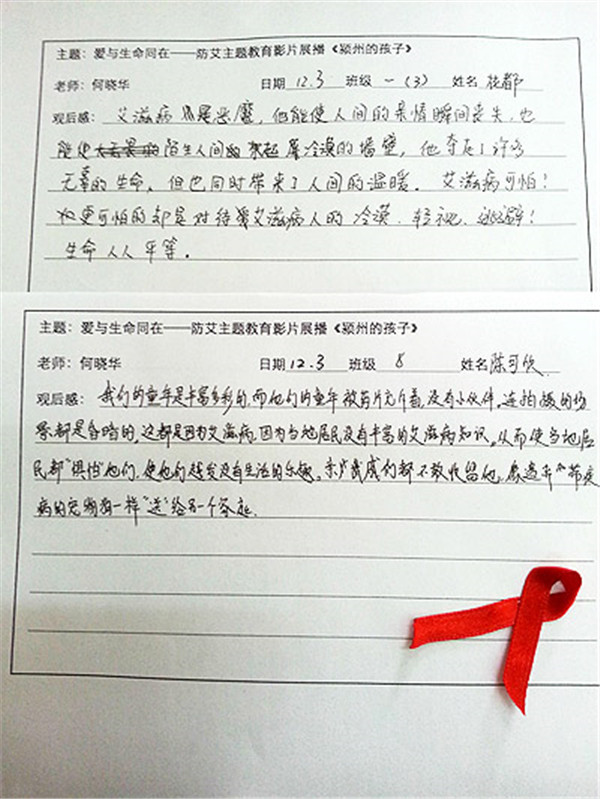 主题：爱与生命同在——防艾主题教育影片展播《颍州的孩子》
老师：何晓华 日期 12.3 班级 一（3） 姓名
观后感：艾滋病是恶魔，他能使人间的亲情瞬间丧失，也
能使陌生人间筑起层冷漠的墙壁，他夺走了许多
无辜的生命，但也同时带来了人间的温暖。艾滋病可怕！
更可怕的却是对待艾滋病人的冷漠、轻视、逃避！
生命人人平等。
主题：爱与生命同在——防艾主题教育影片展播《颍州的孩子》
老师：何晓华 日期 12.3 班级 8 姓名 陈可欣
观后感：我们的童年是丰富多彩的，而他们的童年被病充斥着，没有小伙伴。连拍摄的场
景都是昏暗的。这都是因为艾滋病，因为当地居民没有丰富的艾滋病知识。从而使当地居
民都“惧怕”他们，使他们越发没有生活的乐趣。亲戚们都不敢收留他，
病的宠物狗一样“送”给另一个家庭.